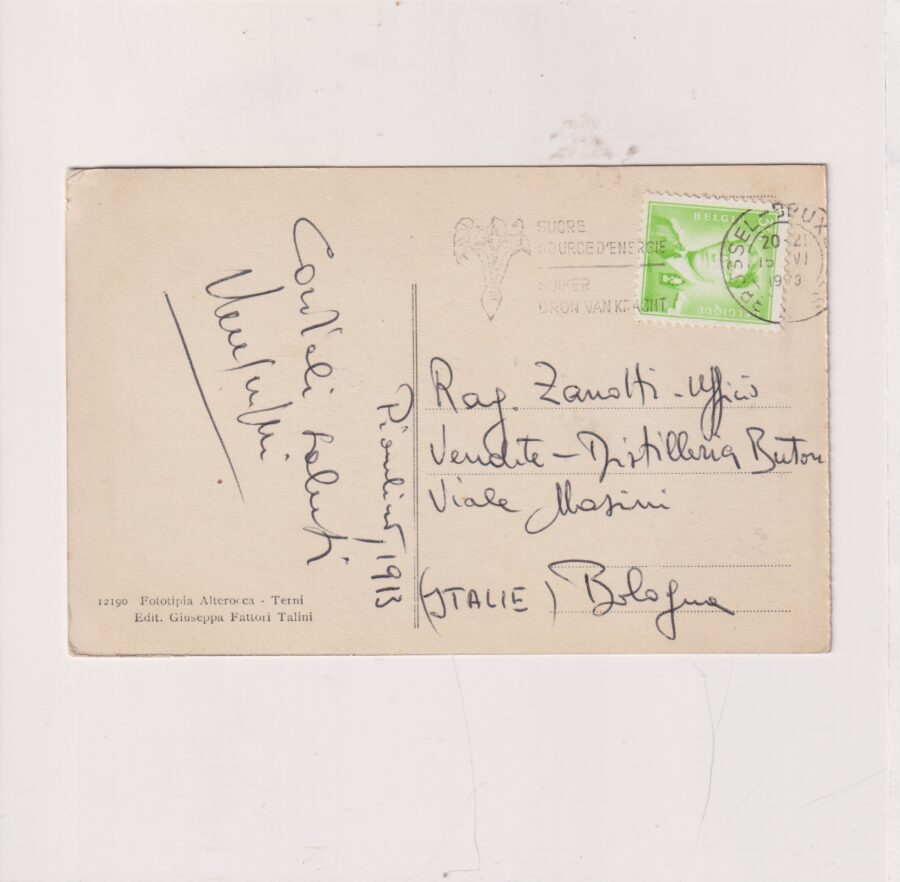 Cordiali saluti
Piombino, 1913
12190 Fototipia Alterocca - Terni
Edit. Giuseppa Fattori Talini
SUCRE
SOURCE D'ENERGIE
SUIKER
BRON VAN KRACHT
BELGIE
BELGIQUE
BRUSSEL BRUXELLES
20-21
15 VI
Rag. Zanotti - Ufficio
Vendite - Distilleria Buton
Viale Masini
(ITALIE) Bologna